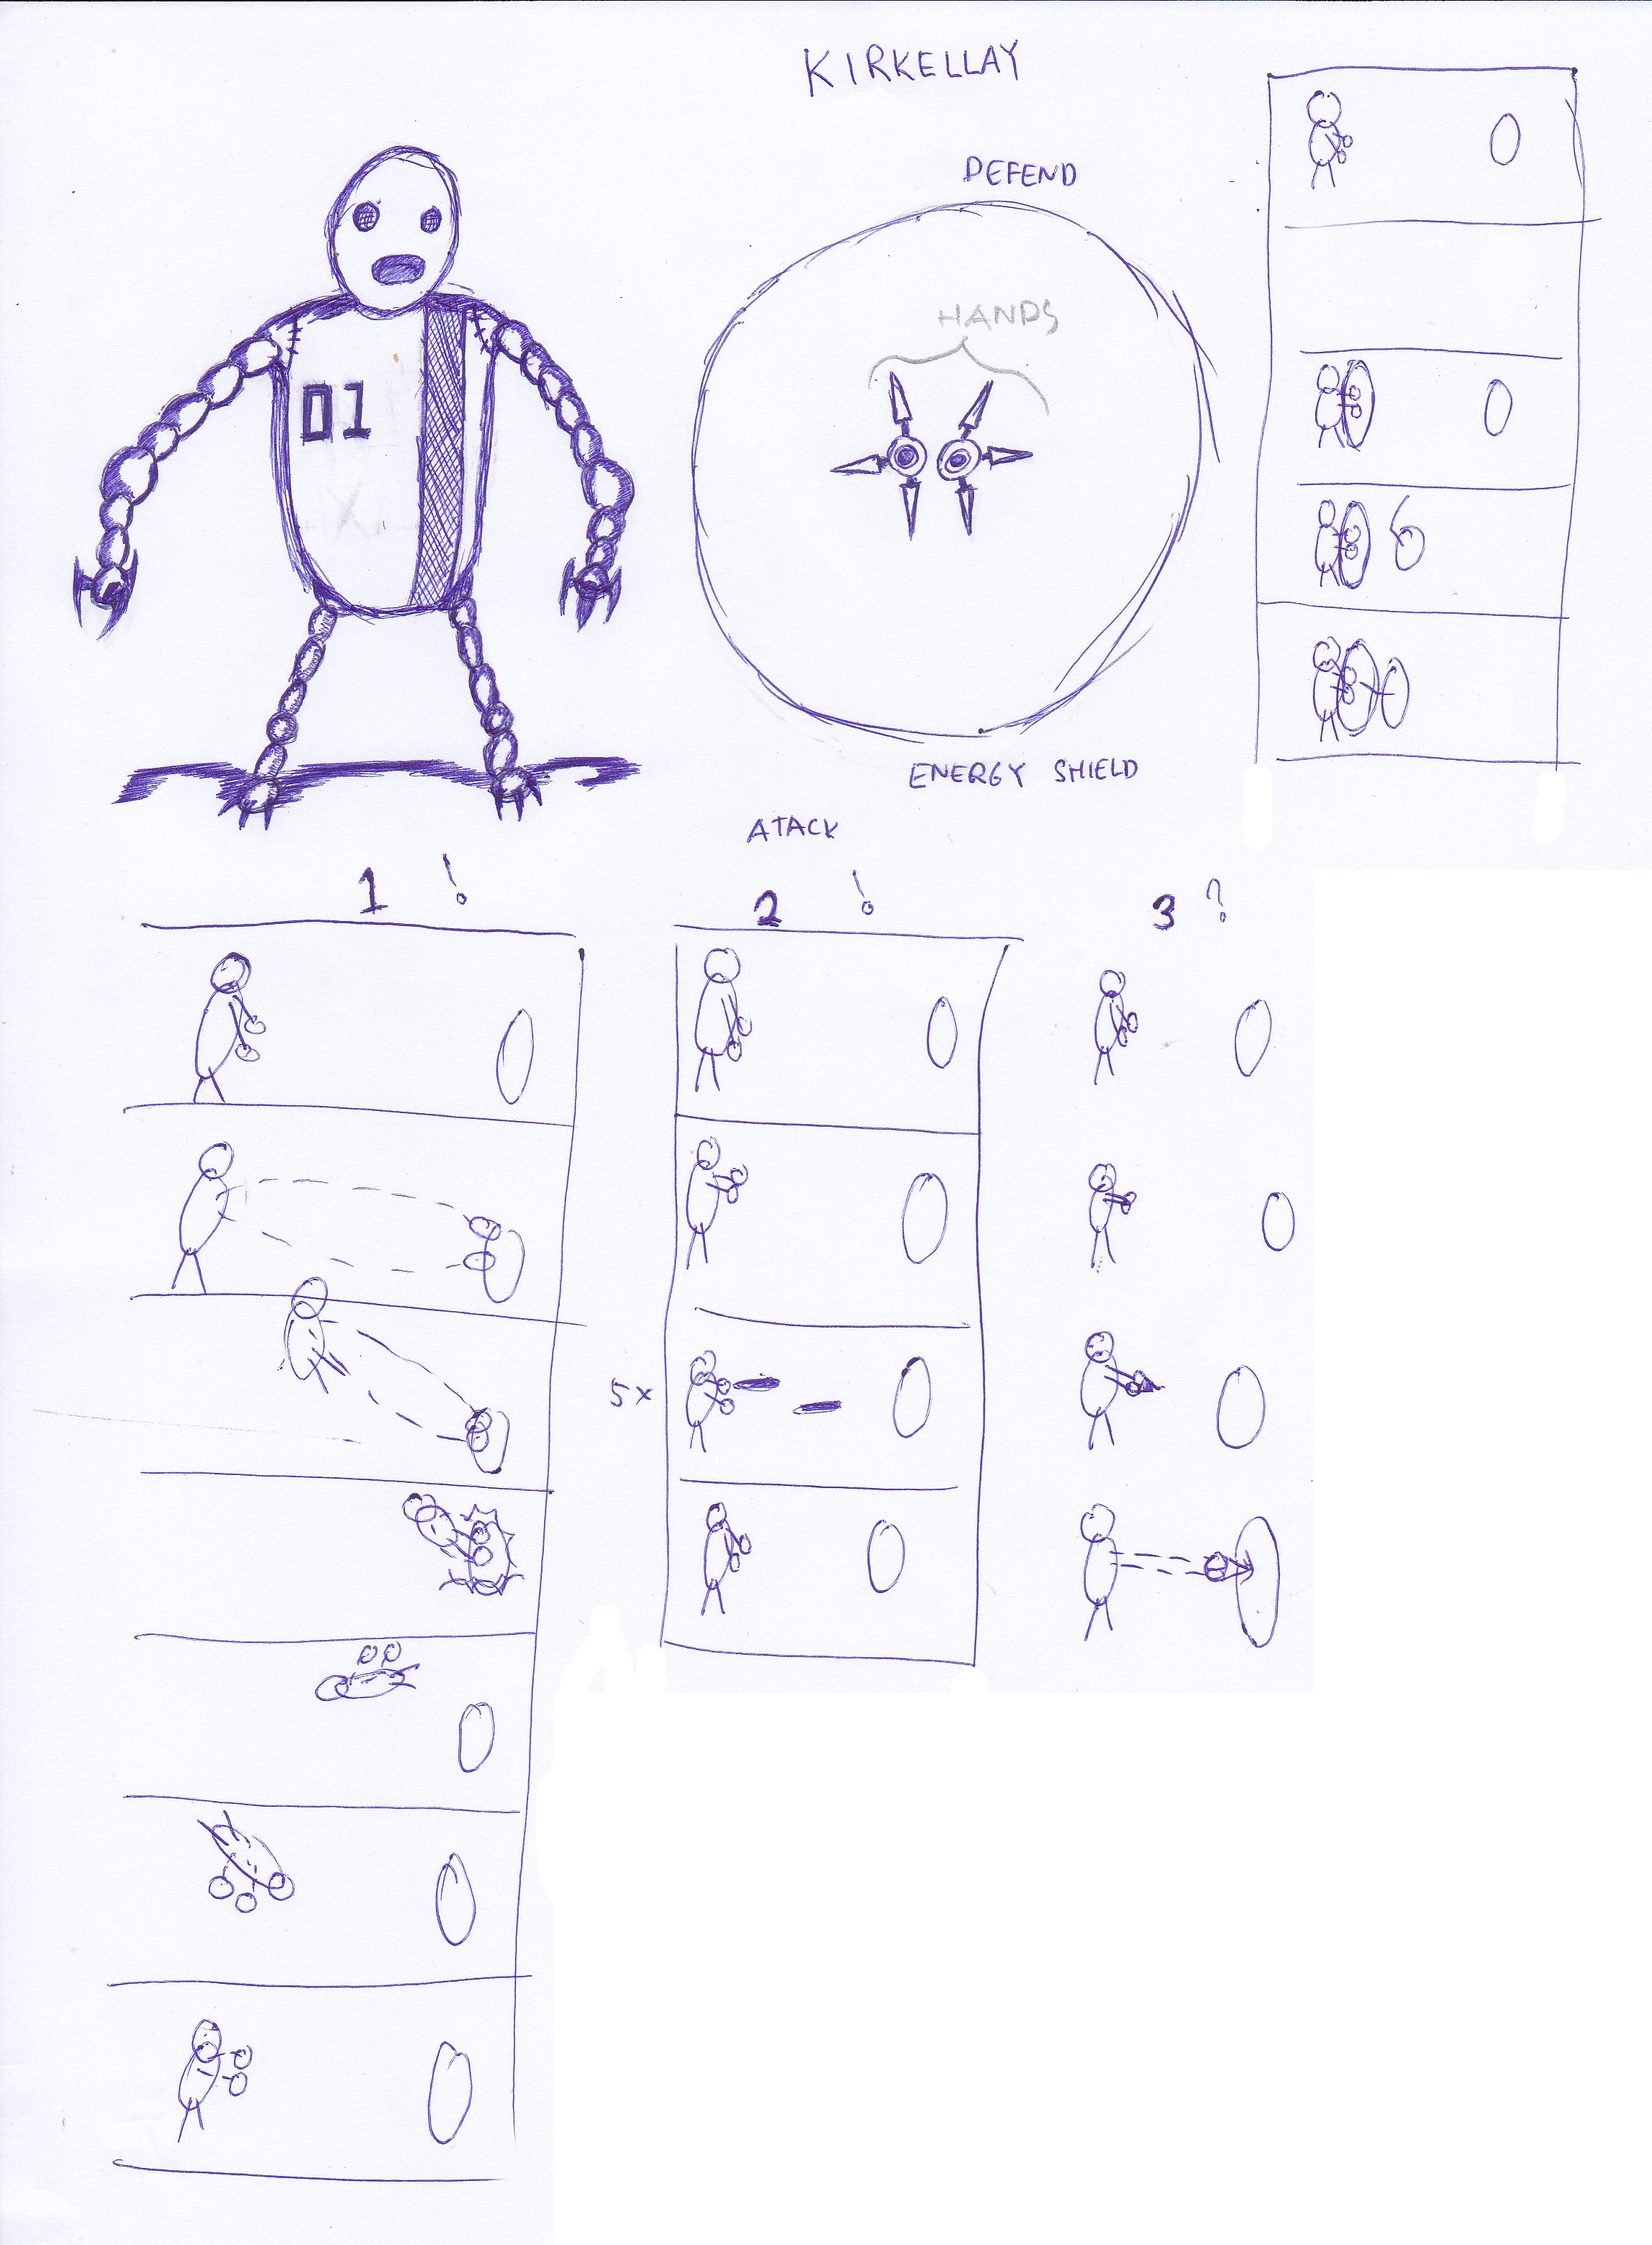 KIRKELLAY
DEFEND
HANDS
01
ENERGY SHIELD
ATACK
1 !
2 !
3 ?
5x